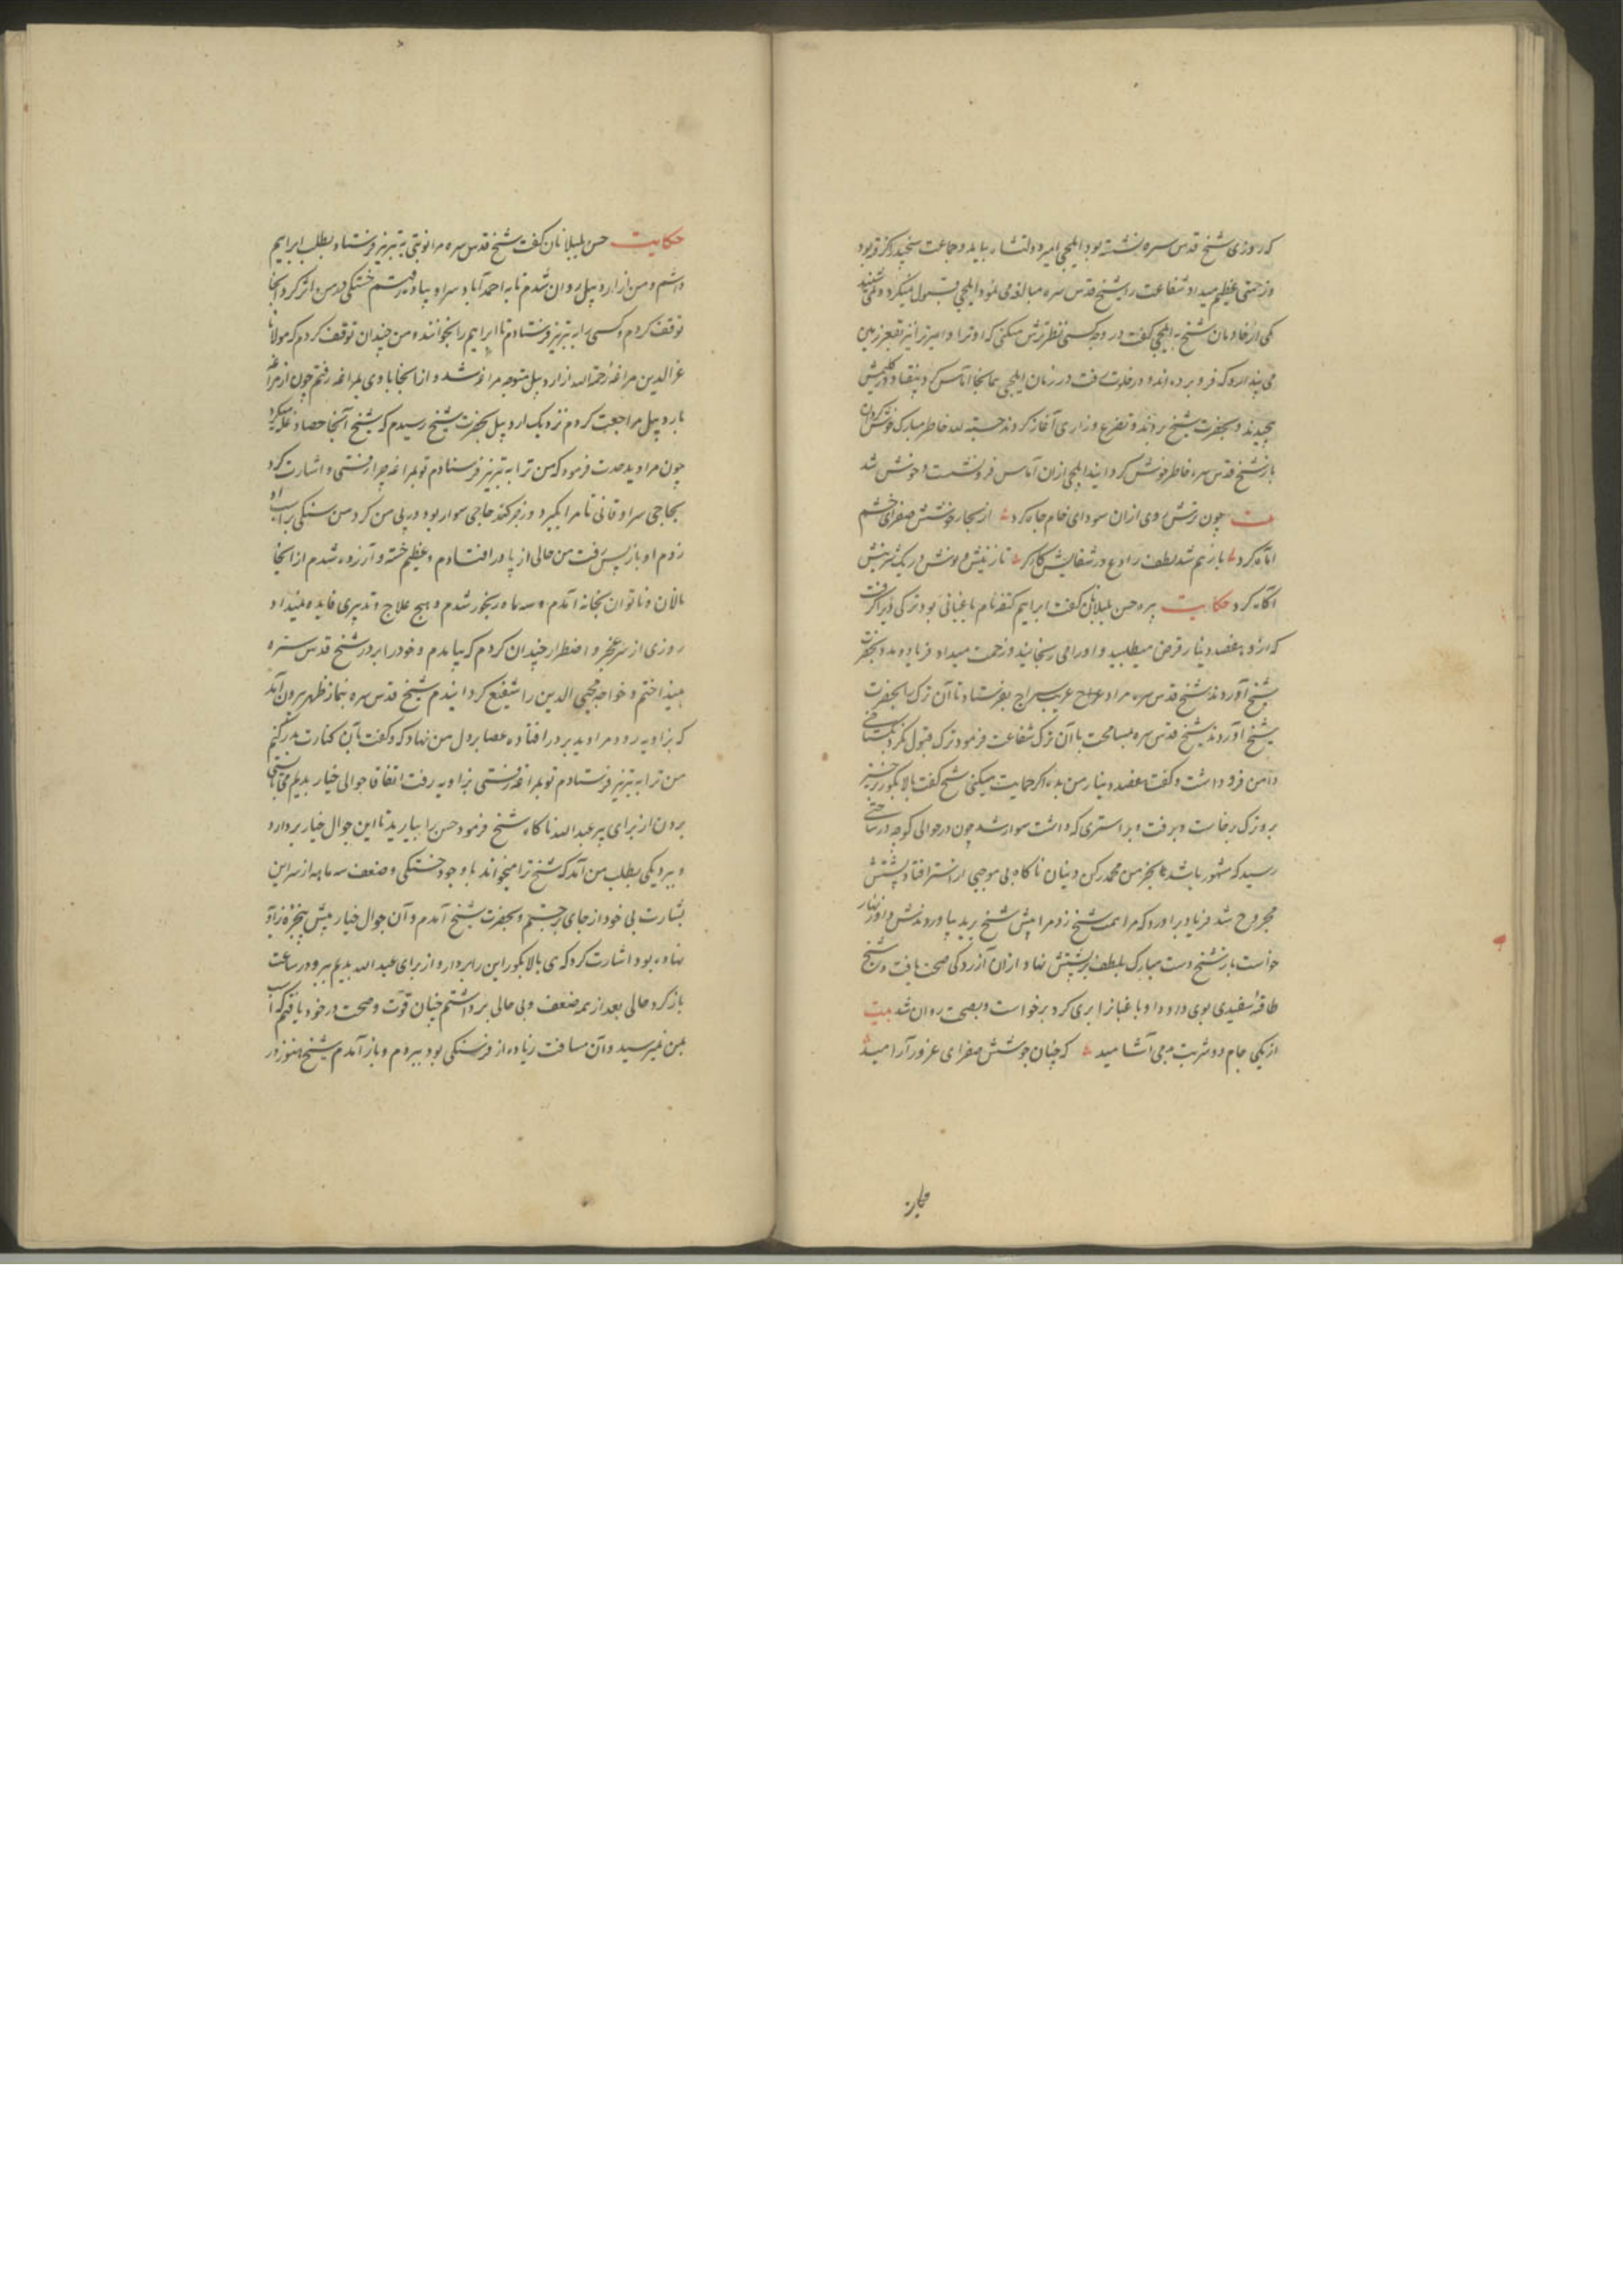 که روزی شیخ قدس سره نشسته بود ایلچی امیر دولتشاه بیامد و جماعت
و زحمتی عظیم میداد شفاعت را شیخ قدس سره مبالغه می نمود ایلچی قبول نمیکرد و نمی شنید
یکی از خادمان شیخ به ایلچی گفت در وجه کسی نظر ترش میکنی که او ترا و امیر ترا نیز بقعر زمین
می پندارد که فرو برده اند و در خلوت رفت در زمان ایلچی همانجا آماس کرد و بیفتاد و در گلیمش
پیچیدند و بحضرت شیخ بردند و تضرع و زاری آغاز کردند حسبة لله خاطر مبارک خوش گردان
باز شیخ قدس سره خاطر خوش گردانید ایلچی از آن آماس فرو نشست و خوش شد
بیت چون ترش روی ازان سودای خام جاه کرد از بخار جوشش صفرای خشم
آماه کرد باز هم شد لطف را
آگاه کرد حکایت پیره حسن بلبلانان گفت ابراهیم کنقه نام باغبانی بود ترکی ویرا گرفت
که ازو هفصد دینار قرض میطلبید و او را می رنجانید و زحمت میداد فریاد و بحضرت
شیخ آوردند شیخ قدس سره مرا و حاج عریب سراج بفرستاد تا آن ترک را بحضرت
شیخ آوردند شیخ قدس سره بمسامحت با آن ترک شفاعت فرمود ترک قبول نکرد بگستاخی
دامن فرو داشت و گفت هفصد دینار من بده اگر حمایت میکنی شیخ گفت بالا بکور خیز
برو ترک برخاست و برفت و بر استری که داشت سوار شد چون در حوالی کوچه درساختی
رسید که مشهور باشد به کنجر من محمد رکن دینان ناگاه بی موجبی از استر افتاد و پشتش
مجروح شد فریاد برآورد که مرا همت شیخ زد مرا پیش شیخ برید بیاوردندش و او زنهار
خواست باز شیخ دست مبارک بلطف بر پشتش نهاد و ازان آزردگی صحت یافت و شیخ
طاقیه سفیدی بوی داد و او باغبانرا بری کرد برخواست و بصحت روان شد بیت
از یکی جام دو شربت می آشامید که چنان جوشش صفرای غرور آرامید
حکایت
حکایت حسن بلبلانان گفت شیخ قدس سره مرا نوبتی به تبریز فرستاد بطلب ابراهیم
داشم و من از اردبیل روان شدم تا به احمدآباد سراو پیاده رفتم خستگی در من اثر کرد آنجا
توقف کردم و کسی را به تبریز فرستادم تا ابراهیم را بخوانند و من چندان توقف کردم که مولانا
عزالدین مراغه رحمة الله از اردبیل متوجه مراغه شد و از آنجا با وی بمراغه رفتم چون از مراغه
باردبیل مراجعت کردم نزدیک اردبیل بحضرت شیخ رسیدم که شیخ آنجا حصاد غله میکرد
چون مرا دید بحدت فرمود که من ترا به تبریز فرستادم تو بمراغه چرا رفتی و اشارت کرد
بحاجی سراوقانی تا مرا بگیرد و زجر کند حاجی سوار بود در پی من کرد من سنگی بر اسب او
زدم او باز پس رفت من حالی از پا در افتادم و عظیم خسته و آزرده شدم از آنجا
نالان و ناتوان بخانه آمدم و سه ماه رنجور شدم و هیچ علاج و تدبیری فایده نمیداد
روزی از سر عجز و اضطرار چندان کردم که بیامدم و خود را بر در شیخ قدس سره
بینداختم و خواجه محیی الدین را شفیع گردانیدم شیخ قدس سره بنماز ظهر بیرون آمد
که بزاویه رود مرا دید بر در افتاده عصا بر دل من نهاد که و گفت تا به آن کنارت بدر کنم
من ترا به تبریز فرستادم تو بمراغه رفتی بزاویه رفت اتفاقا جوالی خیار بدیلم می بایستی
بردن از برای پیر عبدالله ناگاه شیخ فرمود حسن را بیارید تا این جوال خیار بردارد
و ببرد یکی بطلب من آمد که شیخ ترا میخواند با وجود خستگی و ضعف سه ماهه از سر این
بشارت بی خود از جای برجستم و بحضرت شیخ آمدم و آن جوال خیار پیش پنجره زاویه
نهاده بود اشارت کرد که هی بالا بکور این را بردار و از برای عبدالله بدیلم ببر و در ساعت
باز گرد حالی بعد از همه ضعف و بی حالی برداشتم چنان قوت و صحت در خود یافتم که اسب
بمن نمیرسید و آن مسافت زیاده از فرسنگی بود ببردم و باز آمدم شیخ هنوز در